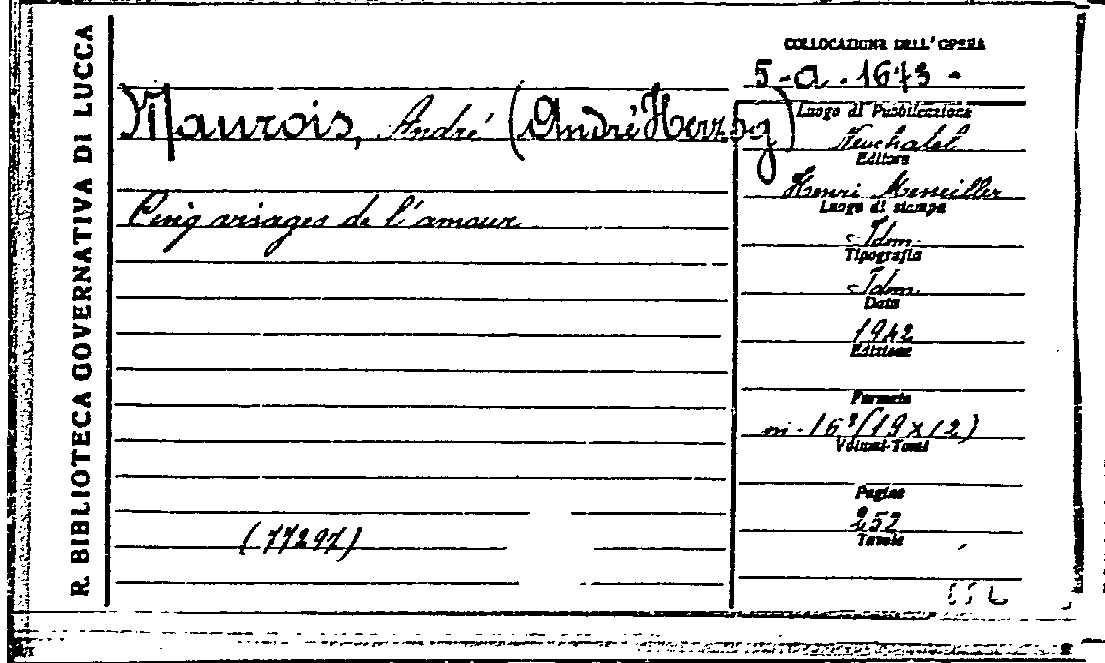 R. BIBLIOTECA GOVERNATIVA DI LUCCA
COLLOCAZIONE DELL'OPERA
5-a.1673-
Maurois, André (André Herzog)
Luogo di Pubblicazione
Neuchatel
Editore
Henri Messeiller
Cinq visages de l'amour
Luogo di stampa
Idm.
Tipografia
Idm
Data
1942
Edizione
Formato
in-16°(19x12)
Volumi-Tomi
Pagine
252
Tavole
(77297)